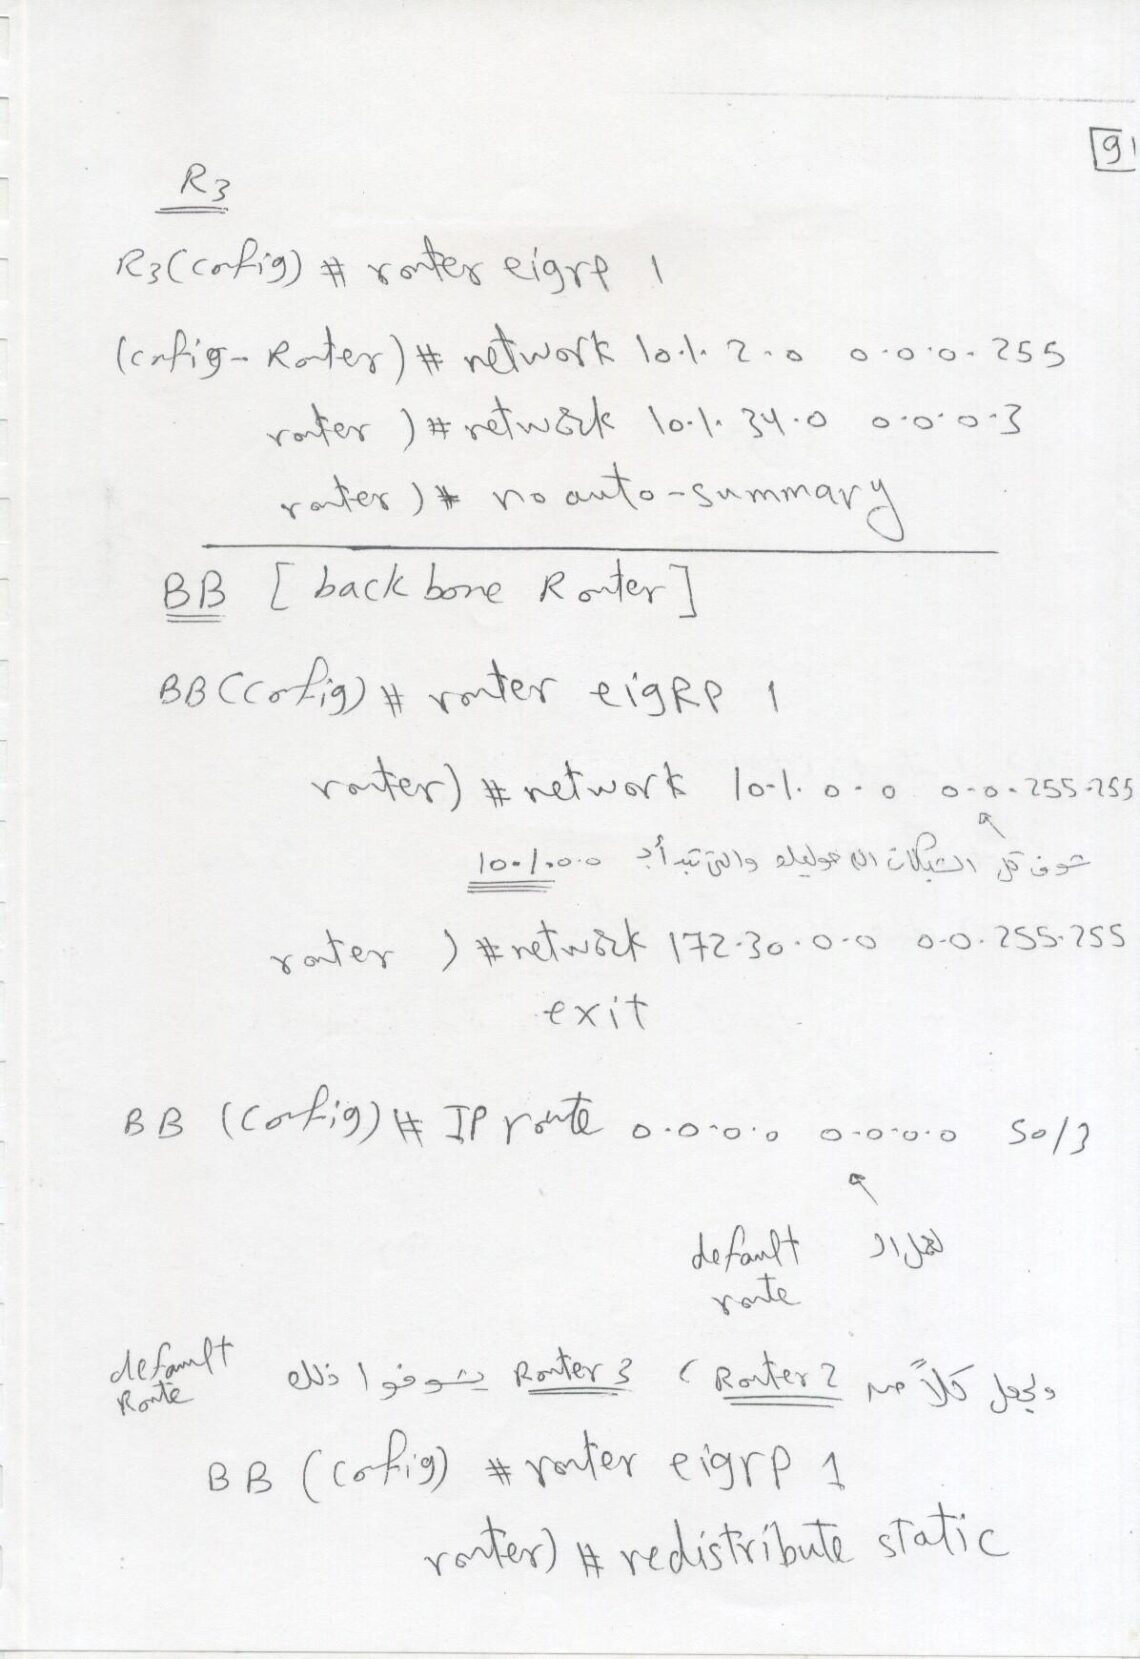 91
R3
R3(config) # router eigrp 1
(config-Router) # network 10.1.2.0 0.0.0.255
router ) # network 10.1.34.0 0.0.0.3
router ) # no auto-summary
BB [ back bone Router ]
BB(config) # router eigRP 1
router) # network 10.1.0.0 0.0.255.255
شوف كل الشبكات الـ حواليك والتى تبدأ بـ 10.1.0.0
router ) # network 172.30.0.0 0.0.255.255
exit
BB (config) # IP route 0.0.0.0 0.0.0.0 S0/3
لعمل الـ default
route
ولجعل كلاً من Router 2 ، Router 3 يشوفوا ذلك default
Route
BB (config) # router eigrp 1
router) # redistribute static